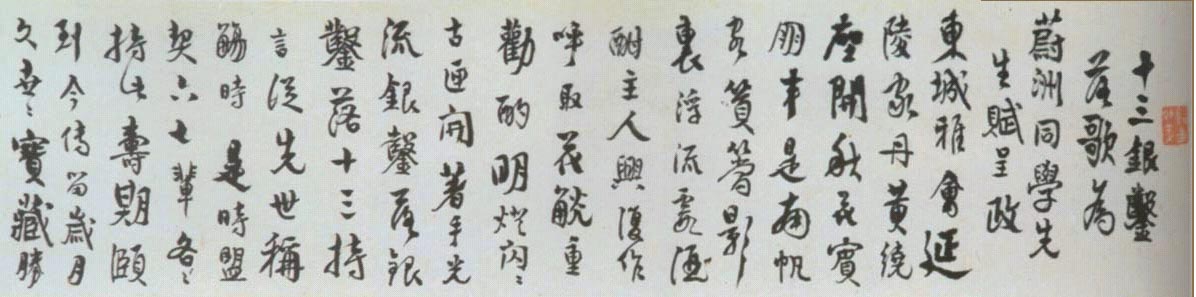 十三銀鑿
落歌為
蔚洲同學先
生賦呈政
東城雅會延
陵家丹黄繞
座開秋花賓
朋半是南帆
客篔簹影
裏浮流霞酒
酣主人興復作
呼取花觥重
勸酌明燈閃〻
古匣開著手光
流銀鑿落銀
鑿落十三持
言從先世稱
觴時是時盟
契六七輩各〻
持此壽期頤
到今傳留歲月
久世〻寶藏勝